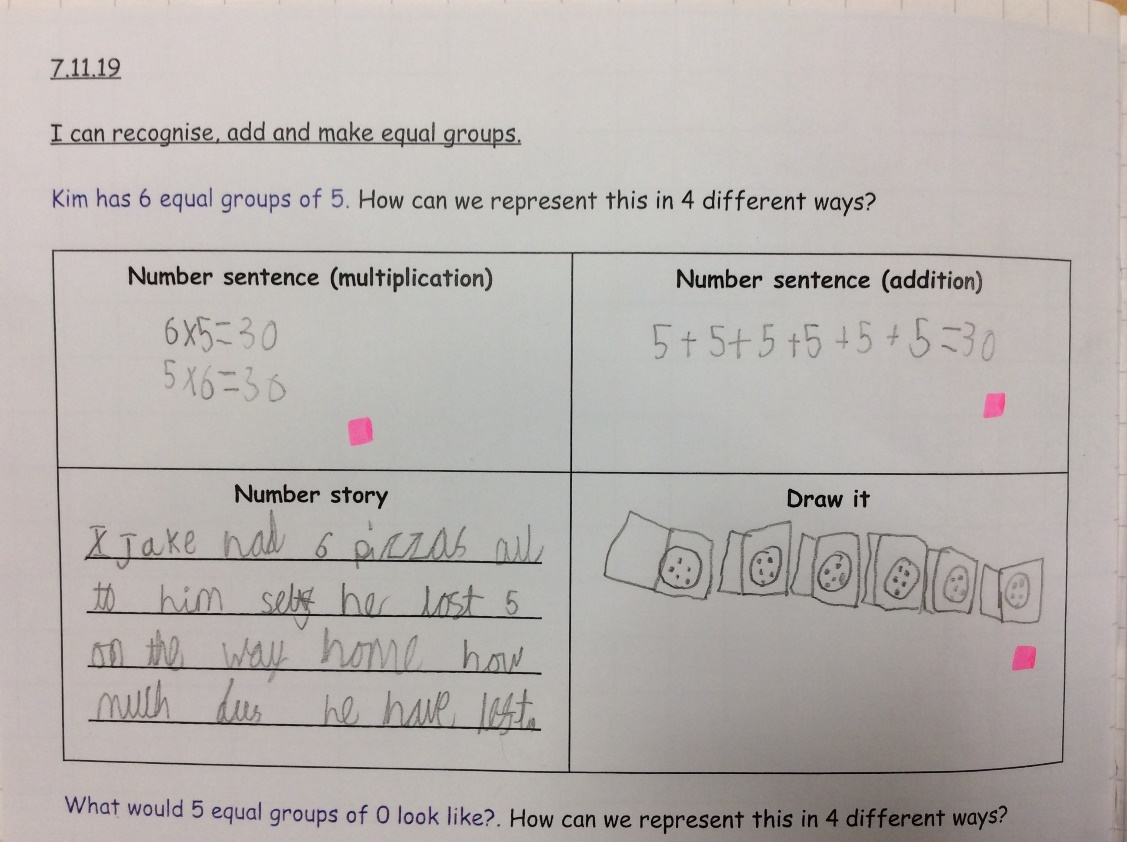 7.11.19
I can recognise, add and make equal groups.
Kim has 6 equal groups of 5. How can we represent this in 4 different ways?
Number sentence (multiplication)
6x5=30
5x6=30
Number sentence (addition)
5+5+5+5+5+5=30
Number story
Jake had 6 pizzas all
to him self he lost 5
on the way home how
much dus he have left.
Draw it
What would 5 equal groups of 0 look like?. How can we represent this in 4 different ways?